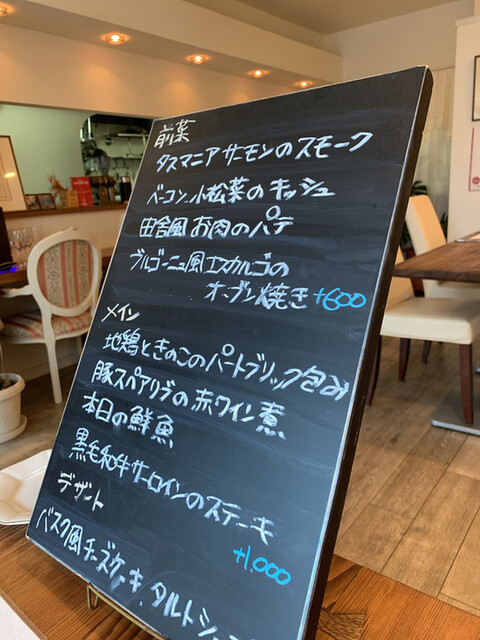 前菜
タスマニアサーモンのスモーク
ベーコン、小松菜のキッシュ
田舎風お肉のパテ
ブルゴーニュ風エスカルゴの
オーブン焼き +600
メイン
地鶏ときのこのパートブリック包み
豚スペアリブの赤ワイン煮
本日の鮮魚
黒毛和牛サーロインのステーキ
+1,000
デザート
バスク風チーズケーキ、タルトショ